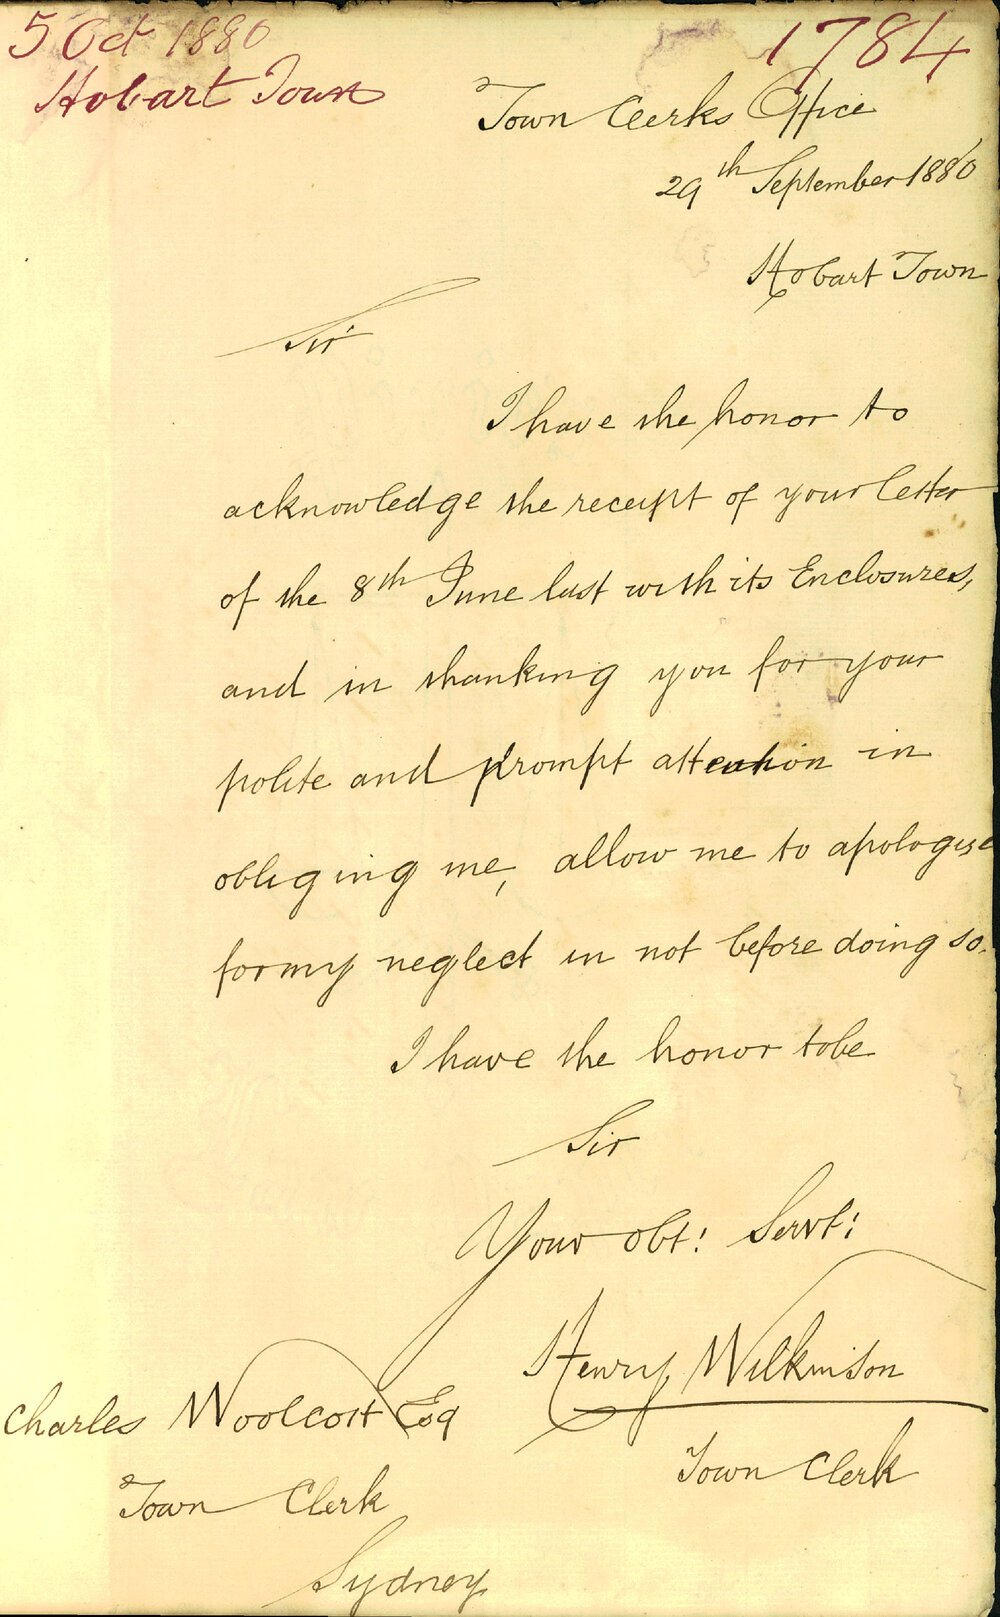 5 Oct 1880
1784
Hobart Town
Town Clerks Office
29th September 1880
Hobart Town
Sir
I have the honor to
acknowledge the receipt of your letter
of the 8th June last with its Enclosures,
and in thanking you for your
polite and prompt attention in
obliging me, allow me to apologise
for my neglect in not before doing so.
I have the honor to be
Sir
Your obt: Servt:
Henry Wilkinson
Charles Woolcott Esq
Town Clerk
Town Clerk
Sydney